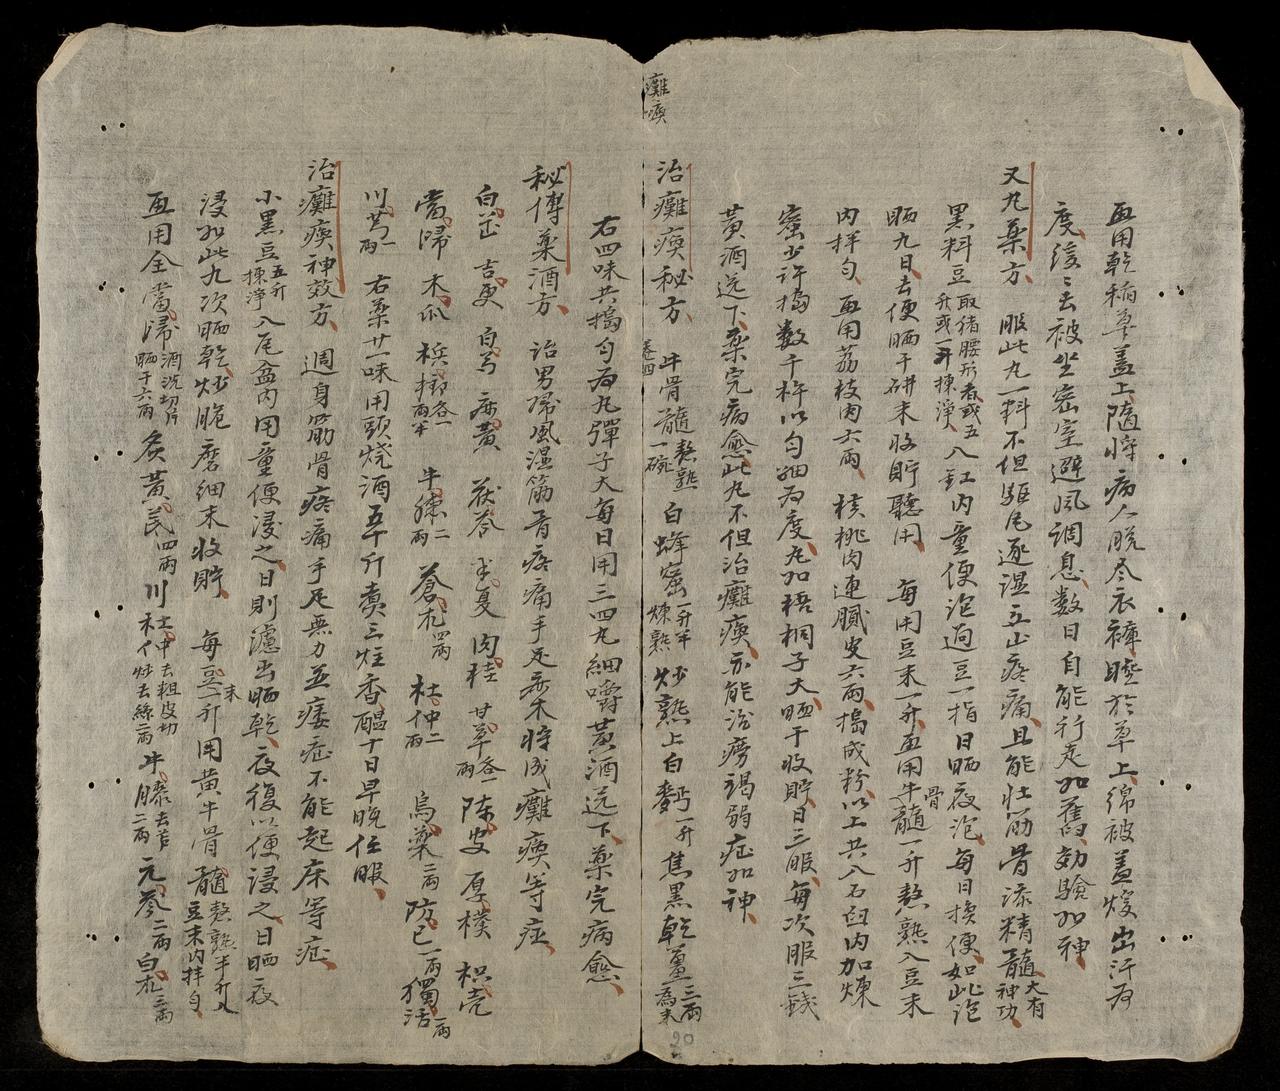 再用乾稻草盖上隨將病人脫尽衣褲睡於草上綿被盖煖出汗為
度後緩去被坐密室避風調息数日自能行走如舊効驗如神
又丸藥方 服此丸一料不但驅風逐湿立止疼痛且能壯筋骨添精髓大有神功
黑料豆取猪腰形者或五升或一斗揀淨入缸内童便泡過豆一指日晒夜泡每日換便如此泡
晒九日去便晒干研末收貯聽用 每用豆末一升再用牛骨髓一升熬熟入豆末
内拌匀再用荔枝肉六兩 核桃肉連膩皮六兩搗成粉以上共入石臼内加煉
蜜少许搗数千杵以匀細為度丸如梧桐子大晒干收貯日三服每次服三錢
黃酒送下藥完病愈此丸不但治癱瘓亦能治癆竭弱症如神
癱瘓
治癱瘓秘方 牛骨髓熬熟一碗 白蜂蜜一升半煉熟 炒熟上白麪一升 焦黑乾薑三兩為末
卷四
右四味共搗匀為丸彈子大每日用三四丸細嚼黃酒送下藥完病愈
秘傳藥酒方 治男婦風湿筋骨疼痛手足麻木將成癱瘓等症
白芷 吉更 白芍 麻黃 茯苓 半夏 肉桂 甘草各一兩 陈皮 厚樸 枳壳
當歸 木瓜 檳榔各一兩半 牛膝二兩 蒼朮四兩 杜仲二兩 烏藥二兩 防己一兩 獨活一兩
川芎一兩 右藥廿一味用頭燒酒五十斤煮三炷香醞十日早晚任服
治癱瘓神效方 週身筋骨疼痛手足無力並痿症不能起床等症
小黑豆五升揀淨入尾盆内用童便浸之日則濾出晒乾夜復以便浸之日晒夜
浸如此九次晒乾炒脆磨細末收貯 每豆末一升用黃牛骨髓熬熟半斤入豆末内拌匀
再用全當歸酒洗切片晒干六兩 炙黃芪四兩 川杜仲去粗皮切片炒去絲二兩 牛膝去芦二兩 元參二兩 白朮三兩
20